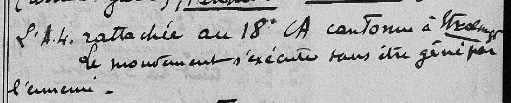 L'A.4. rattachée au 18e CA cantonne à
Le mouvement s'exécute sans être gêné par
l'ennemi.